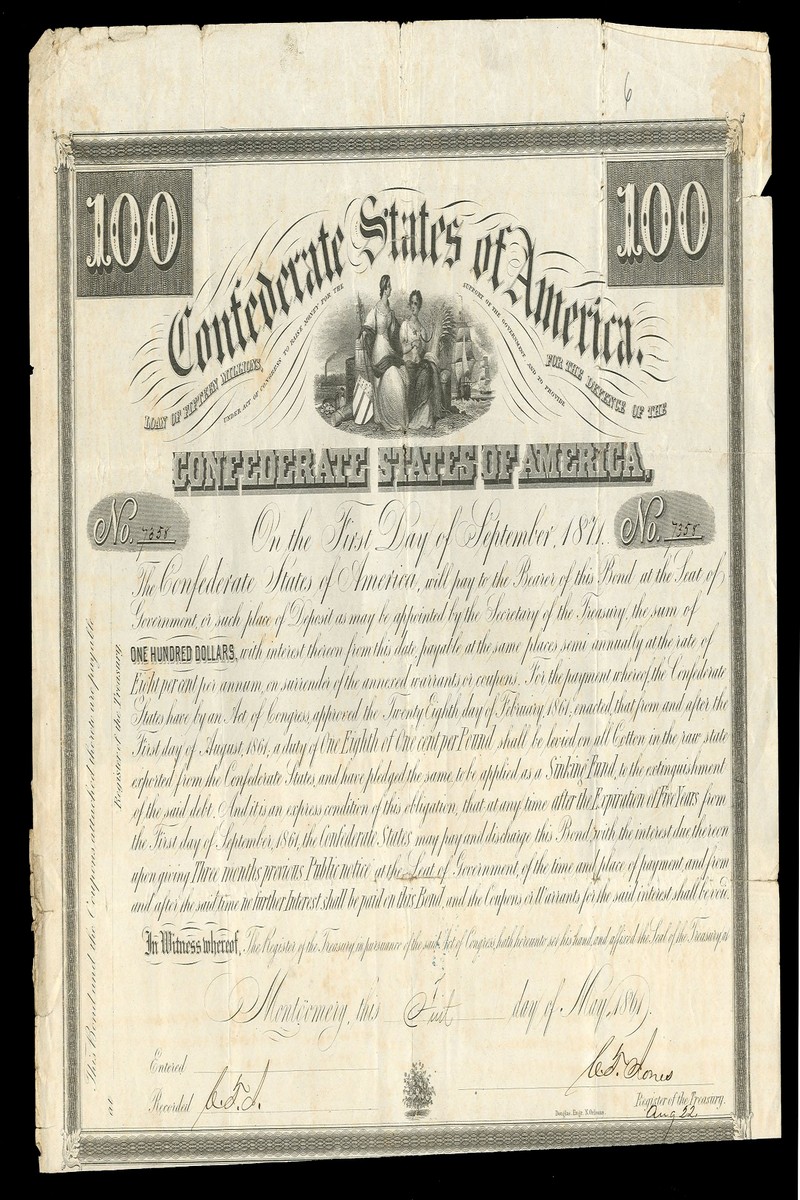 6
100
100
Confederate States of America.
LOAN OF FIFTEEN MILLIONS,
UNDER ACT OF CONGRESS TO RAISE MONEY FOR THE
SUPPORT OF THE GOVERNMENT AND TO PROVIDE
FOR THE DEFENCE OF THE
CONFEDERATE STATES OF AMERICA,
No. 7358
No. 7358
On the First Day of September, 1871.
The Confederate States of America, will pay to the Bearer of this Bond at the Seat of
Government, or such place of Deposit as may be appointed by the Secretary of the Treasury, the sum of
ONE HUNDRED DOLLARS, with interest thereon from this date, payable at the same places semi annually at the rate of
Eight per cent per annum, on surrender of the annexed warrants or coupons. For the payment whereof the Confederate
States have by an Act of Congress, approved the Twenty Eighth day of February, 1861, enacted, that from and after the
First day of August, 1861, a duty of One Eighth of One cent per Pound shall be levied on all Cotton in the raw state
exported from the Confederate States, and have pledged the same, to be applied as a Sinking Fund, to the extinguishment
of the said debt. And it is an express condition of this obligation, that at any time after the Expiration of Five Years from
the First day of September, 1861, the Confederate States may pay and discharge this Bond, with the interest due thereon
upon giving Three months previous Public notice at the Seat of Government, of the time and place of payment, and from
and after the said time no further Interest shall be paid on this Bond, and the Coupons or Warrants for the said interest shall be void.
In Witness whereof, The Register of the Treasury, in pursuance of the said Act of Congress, hath hereunto set his hand, and affixed the Seal of the Treasury at
Montgomery, this First day of May, 1861.
Entered
Recorded C.T.J.
C.T. Jones
Register of the Treasury.
Aug 22
Douglas, Engr. N. Orleans.
This Bond and the Coupons attached thereto are payable
at
Register of the Treasury.